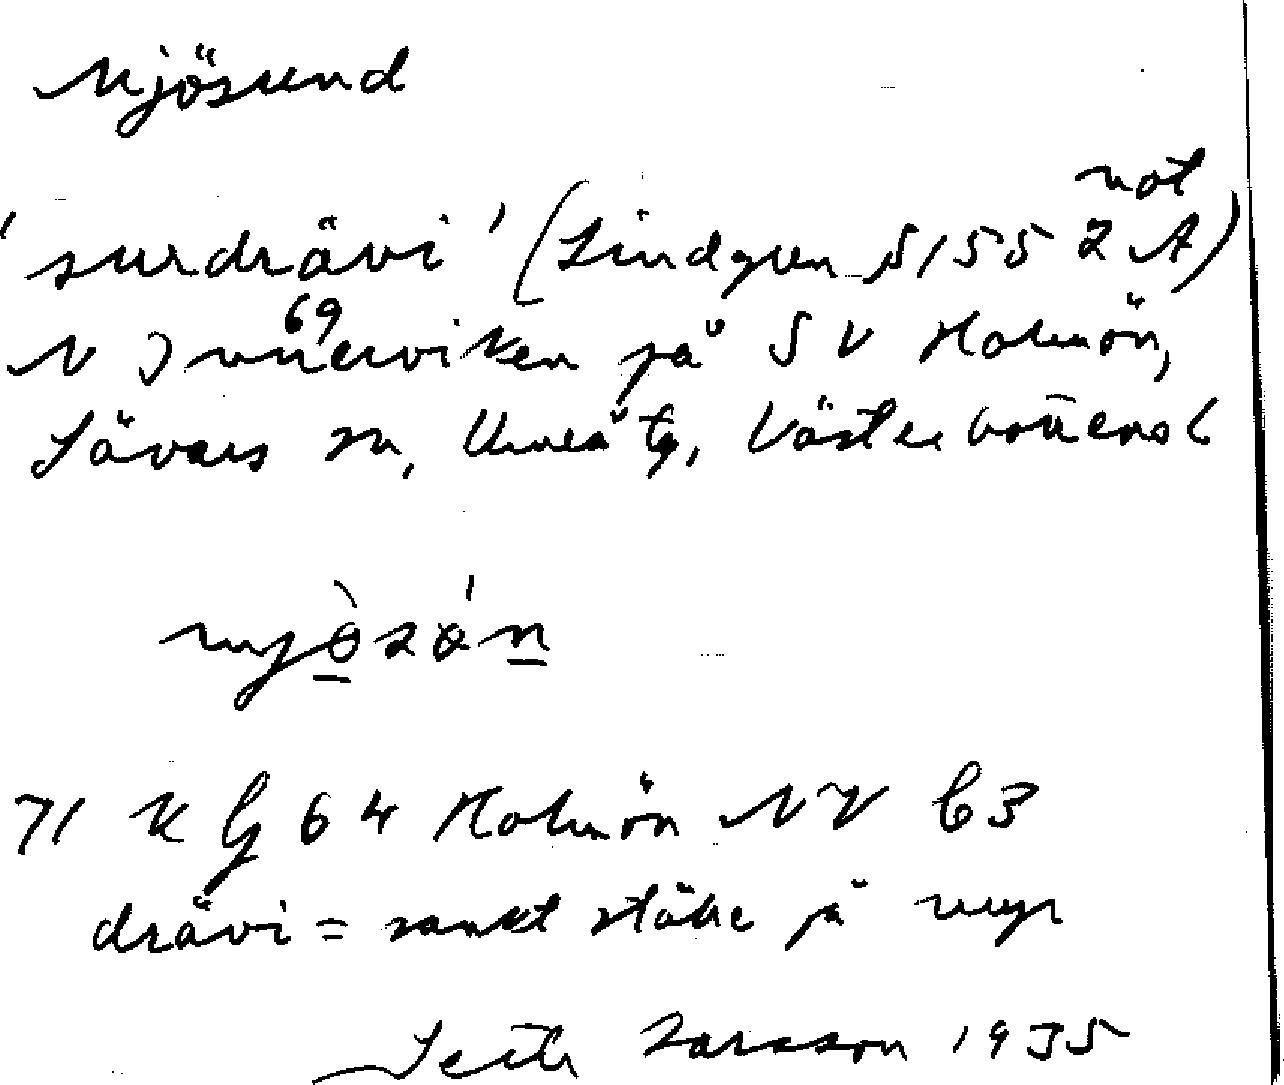 Mjösund
not
'surdrävi' (Lindgren S 155 2 A)
69
N Innerviken på SV Holmön,
Sävars sn, Umeå tg, Västerbottens l
mjò̠sǿn̠
71 K G 64 Holmön NV b3
drävi = sankt ställe på myr
Larsson 1935